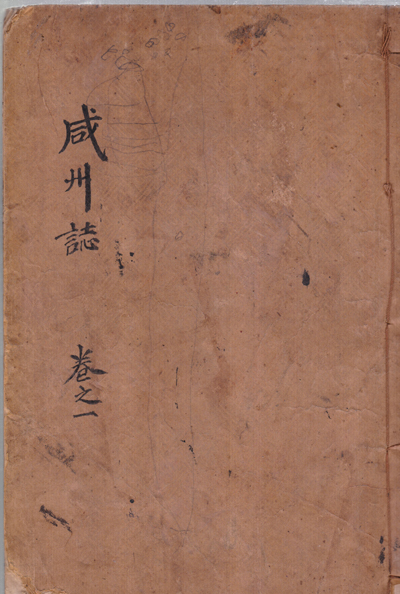 咸州誌
卷之一